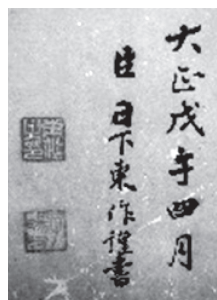 大正戊午四月
臣日下東作謹書